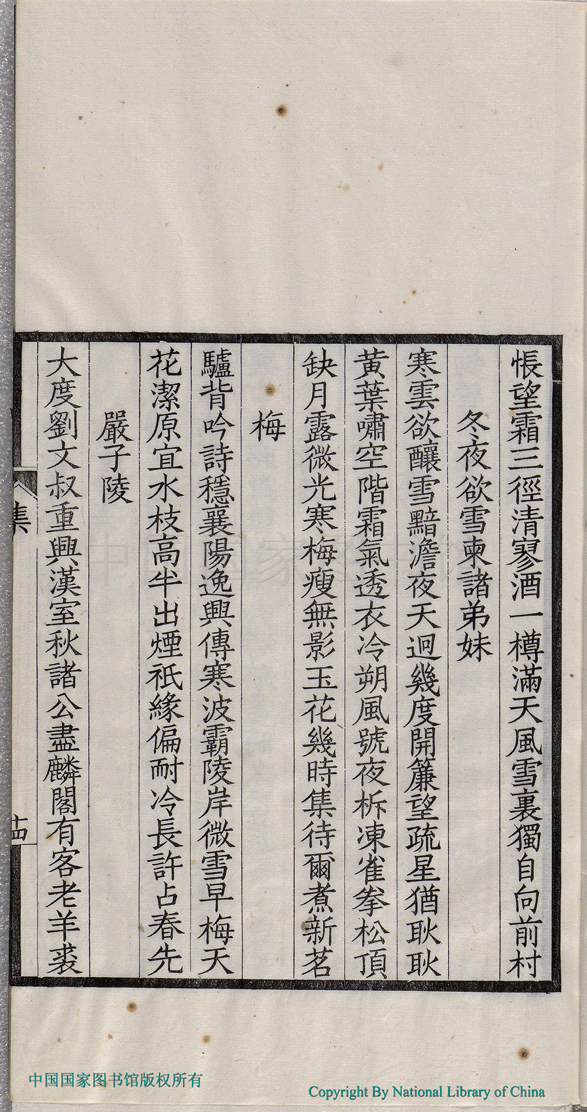 悵望霜三徑清寥酒一樽滿天風雪裏獨自向前村
冬夜欲雪柬諸弟妹
寒雲欲釀雪黯澹夜天迥幾度開簾望疏星猶耿耿
黃葉嘯空階霜氣透衣冷朔風號夜柝凍雀拳松頂
缺月露微光寒梅瘦無影玉花幾時集待爾煮新茗
梅
驢背吟詩穩襄陽逸興傳寒波霸陵岸微雪早梅天
花潔原宜水枝高半出煙祇緣偏耐冷長許占春先
嚴子陵
大度劉文叔重興漢室秋諸公盡麟閣有客老羊裘
集
十四
中国国家图书馆版权所有
Copyright By National Library of China